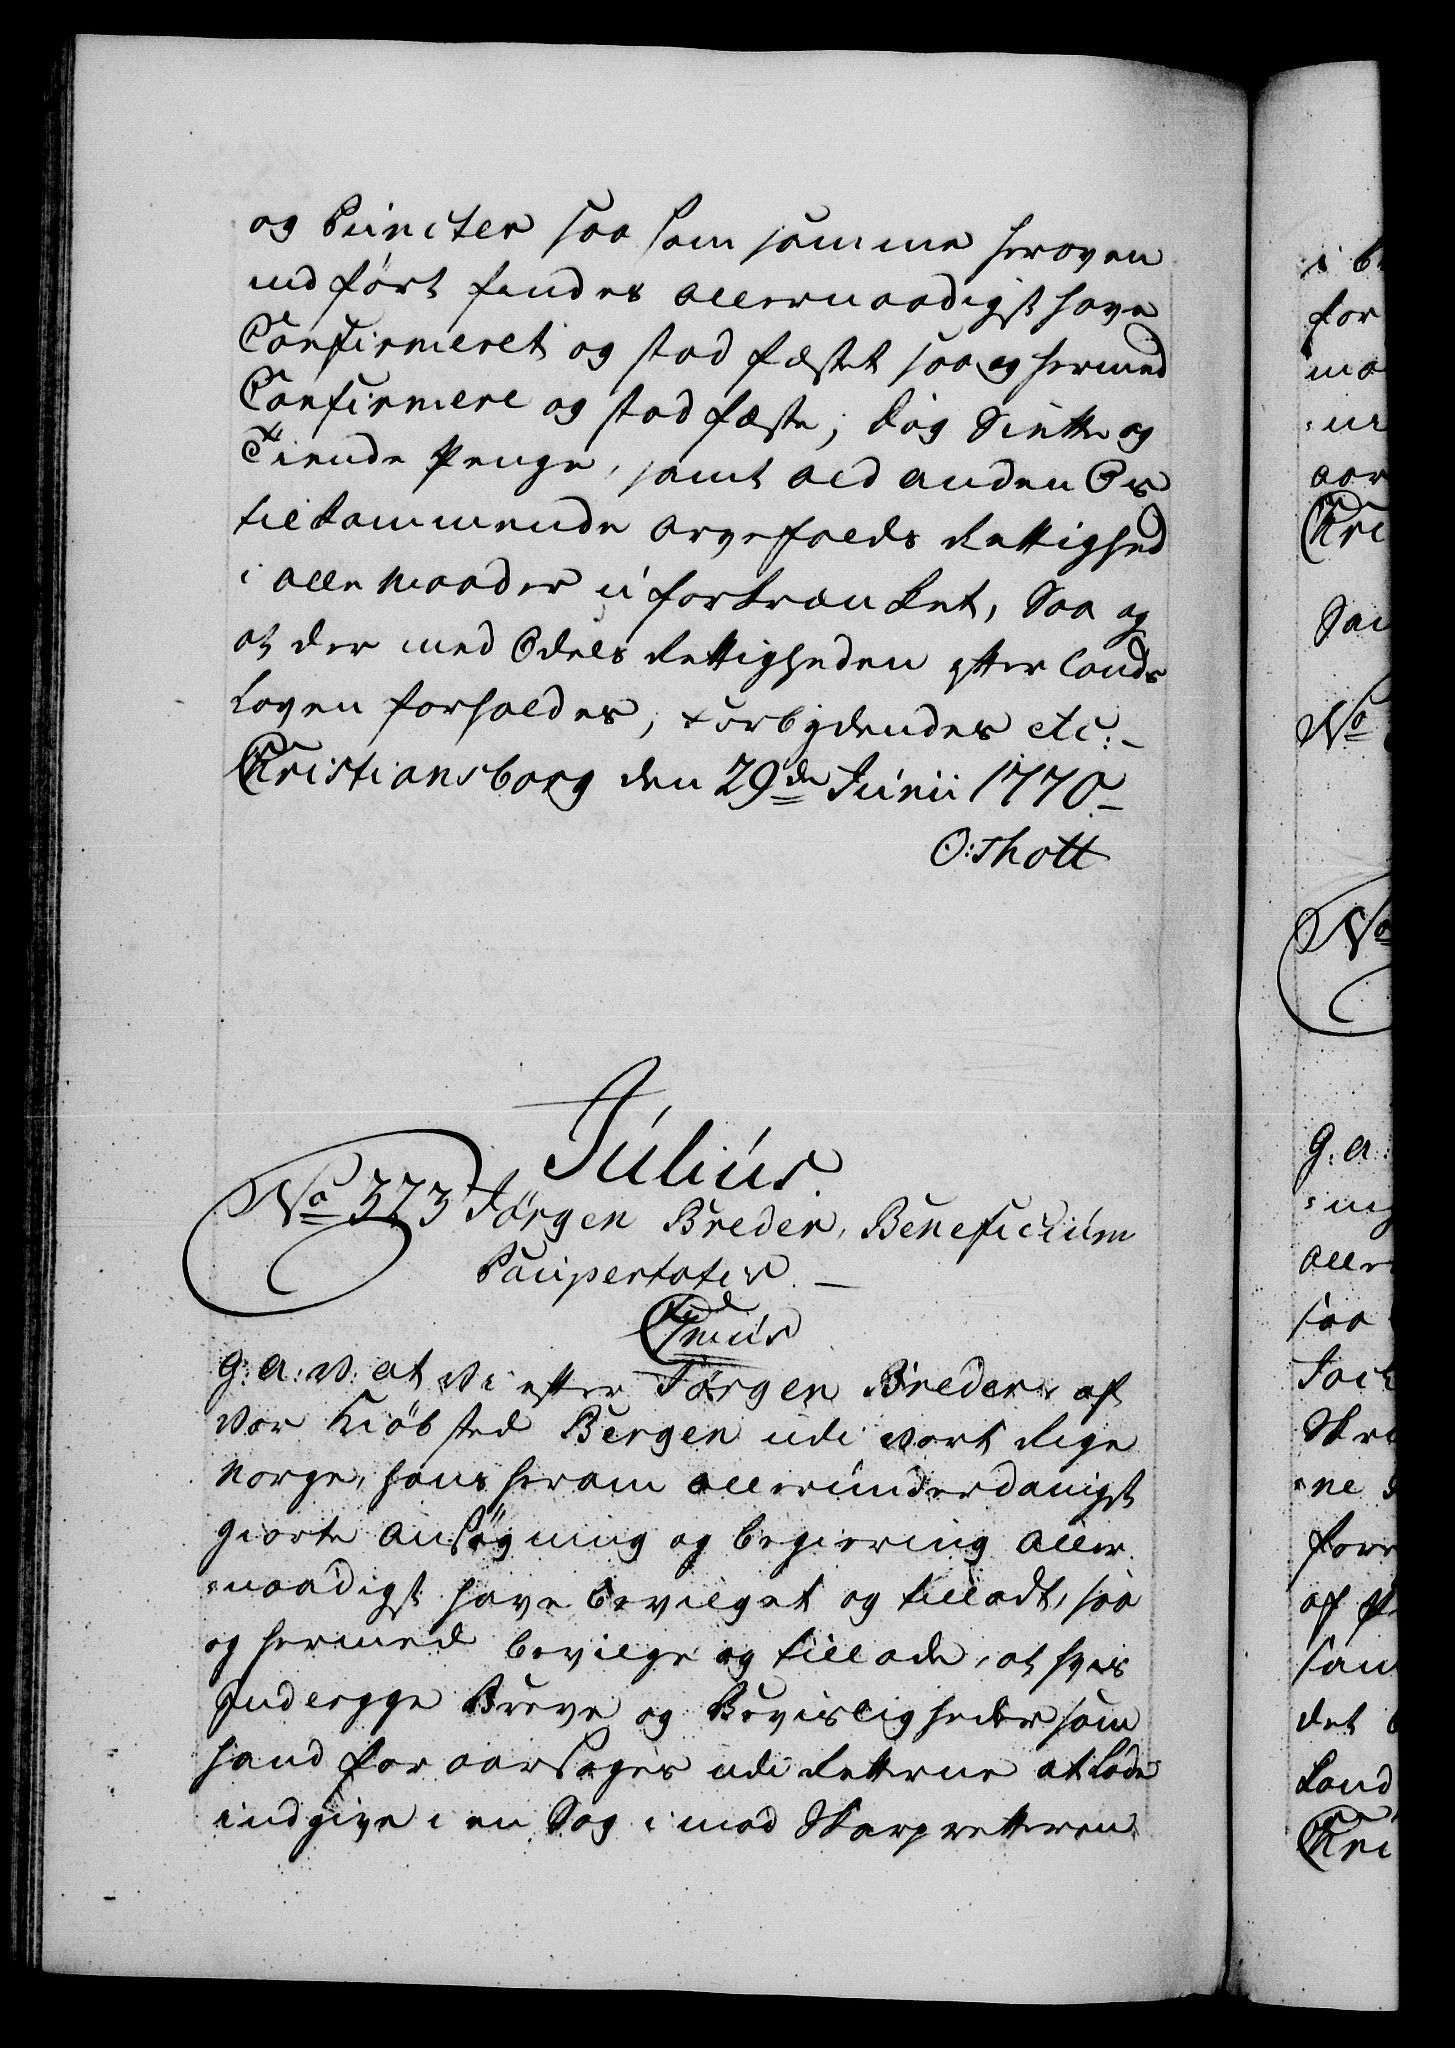 og Puncter saa som samme heroven
indført findes allernaadigst have
Confirmeret og stadfæstet saa og hermed
Confirmere og stadfæste; dog Siette og
Tiende Penge, samt ald anden Os
tilkommende arvefalds Rettighed
i alle Maader uforkrænket, Saa og
at der med Odels Rettigheden efter Lands
Loven forholdes, Forbydendes etc:-
Christiansborg den 29de Junii 1770.-
O: Thott
Julius.
No 373 Jørgen Breder, Beneficium
Paupertatis. -
C7mus
G: A: V: at Vi efter Jørgen Breder af
Vor Kiøbsted Bergen udi Vort Rige
Norge, hans herom allerunderdanigst
giorte Ansøgning og begiering aller-
=naadigst have bevilget og tilladt, saa
og hermed bevilge og tillade, at hvis
Indlegge Breve og Bevisligheder som
hand foraarsages udi Retterne at lade
indgive i en Sag imod Skarpretteren
i
for
No
Sa
No
G: A:
det
Land